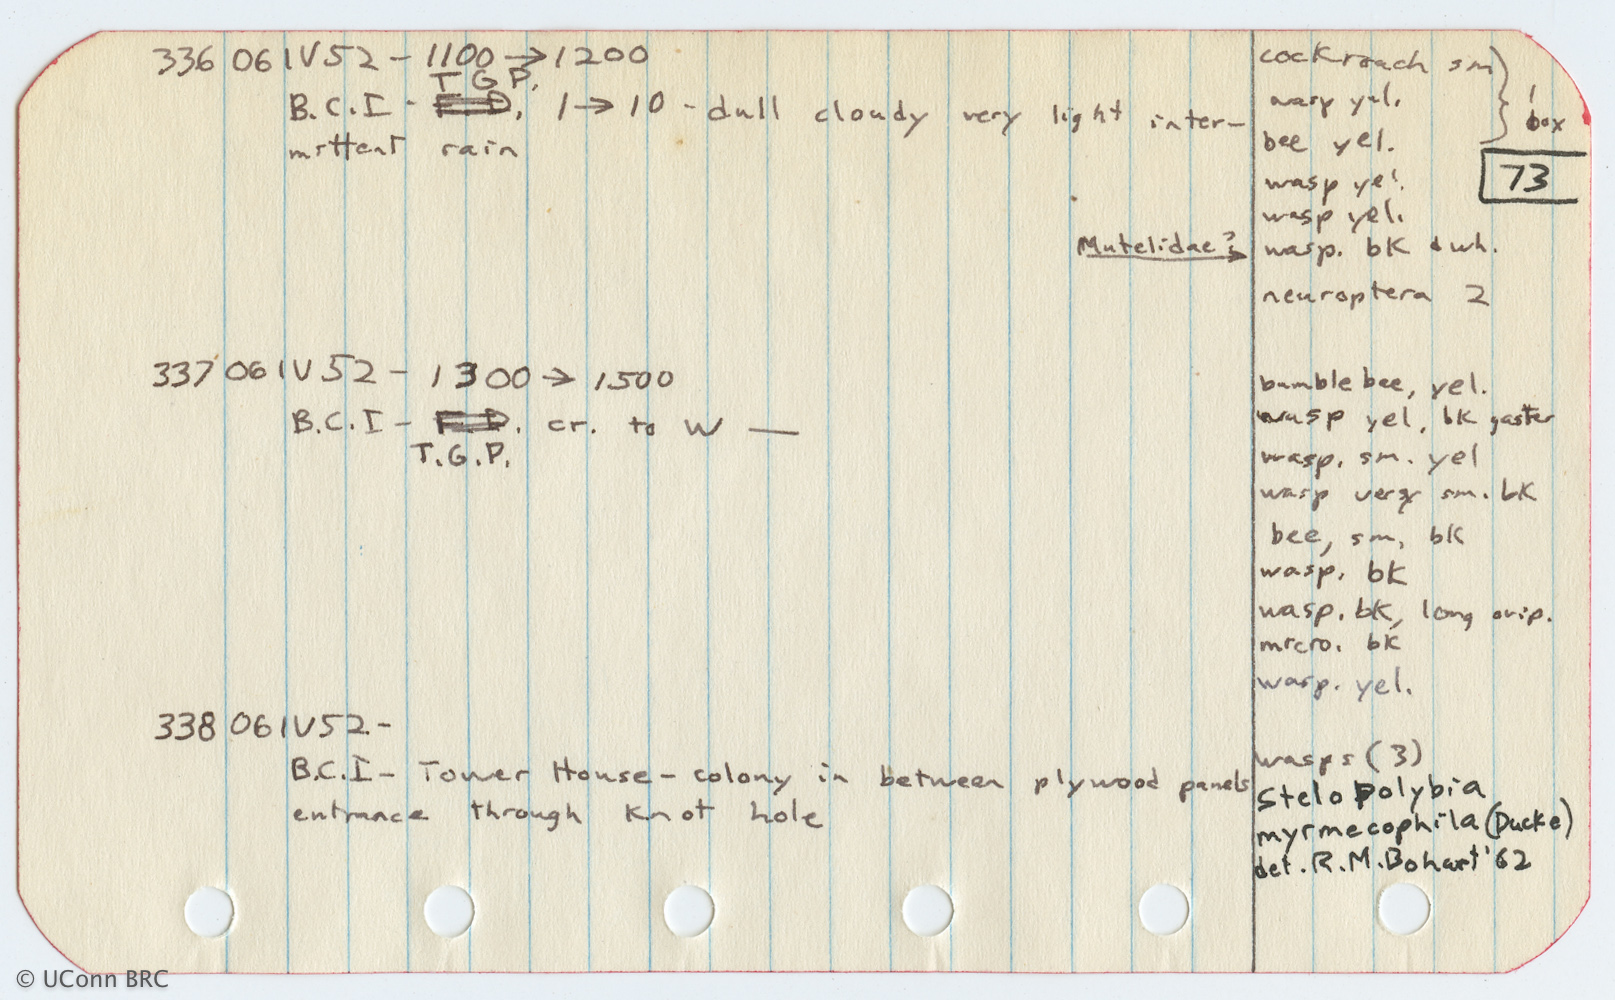 336 061V52 - 1100 → 1200
T.G.P.
B.C.I - F.D. 1 → 10 - dull cloudy very light inter-
mittent rain
cockroach sm
wasp yel.
bee yel.
1 box
wasp yel.
73
wasp yel.
Mutelidae? → wasp. bk & wh.
neuroptera 2
337 061V52 - 1300 → 1500
B.C.I - F.D. cr. to W —
T.G.P.
bumble bee, yel.
wasp yel, bk gaster
wasp. sm. yel
wasp very sm. bk
bee, sm, bk
wasp. bk
wasp. bk, long ovip.
micro. bk
wasp. yel.
338 061V52 -
B.C.I - Tower House - colony in between plywood panels
entrance through Knot hole
wasps (3)
Stelopolybia
myrmecophila (Ducke)
det. R.M. Bohart '62
© UConn BRC